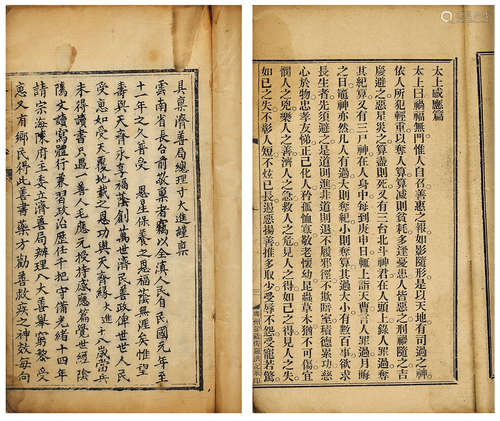 太上感應篇
太上曰禍福無門惟人自召善惡之報如影隨形是以天地有司過之神
依人所犯輕重以奪人算算減則貧耗多逢憂患人皆惡之刑禍隨之吉
慶避之惡星災之算盡則死又有三台北斗神君在人頭上錄人罪過奪
其紀算又有三尸神在人身中每到庚申日輒上詣天曹言人罪過月晦
之日竈神亦然凡人有過大則奪紀小則奪算其過大小有數百事欲求
長生者先須避之是道則進非道則退不履邪徑不欺暗室積德累功慈
心於物忠孝友悌正己化人矜孤恤寡敬老懷幼昆蟲草木猶不可傷宜
憫人之兇樂人之善濟人之急救人之危見人之得如己之得見人之失
如己之失不彰人短不炫己長遏惡揚善推多取少受辱不怨受寵若驚
具稟濟善局總理寸大進謹稟
雲南省長台前敬稟者竊以全滇人民自民國元年至
十一年之久普受 恩是保養之恩福蔭無涯矣惟望
壽與天齊永享福蔭創萬世濟民善政俾世世人民
受惠如受天覆地載之恩功與天齊緣大進十八歲當兵
未得讀書只遇一善人毛應元授持感應篇覺世經陰
隲文讀寫體行兼習政治歷任千把守備光緒十四年
請宗海陳府主委立濟善局辦理八大善舉窮黎受
惠又有鄉民得此善書藥方勸善救疾之神效每向